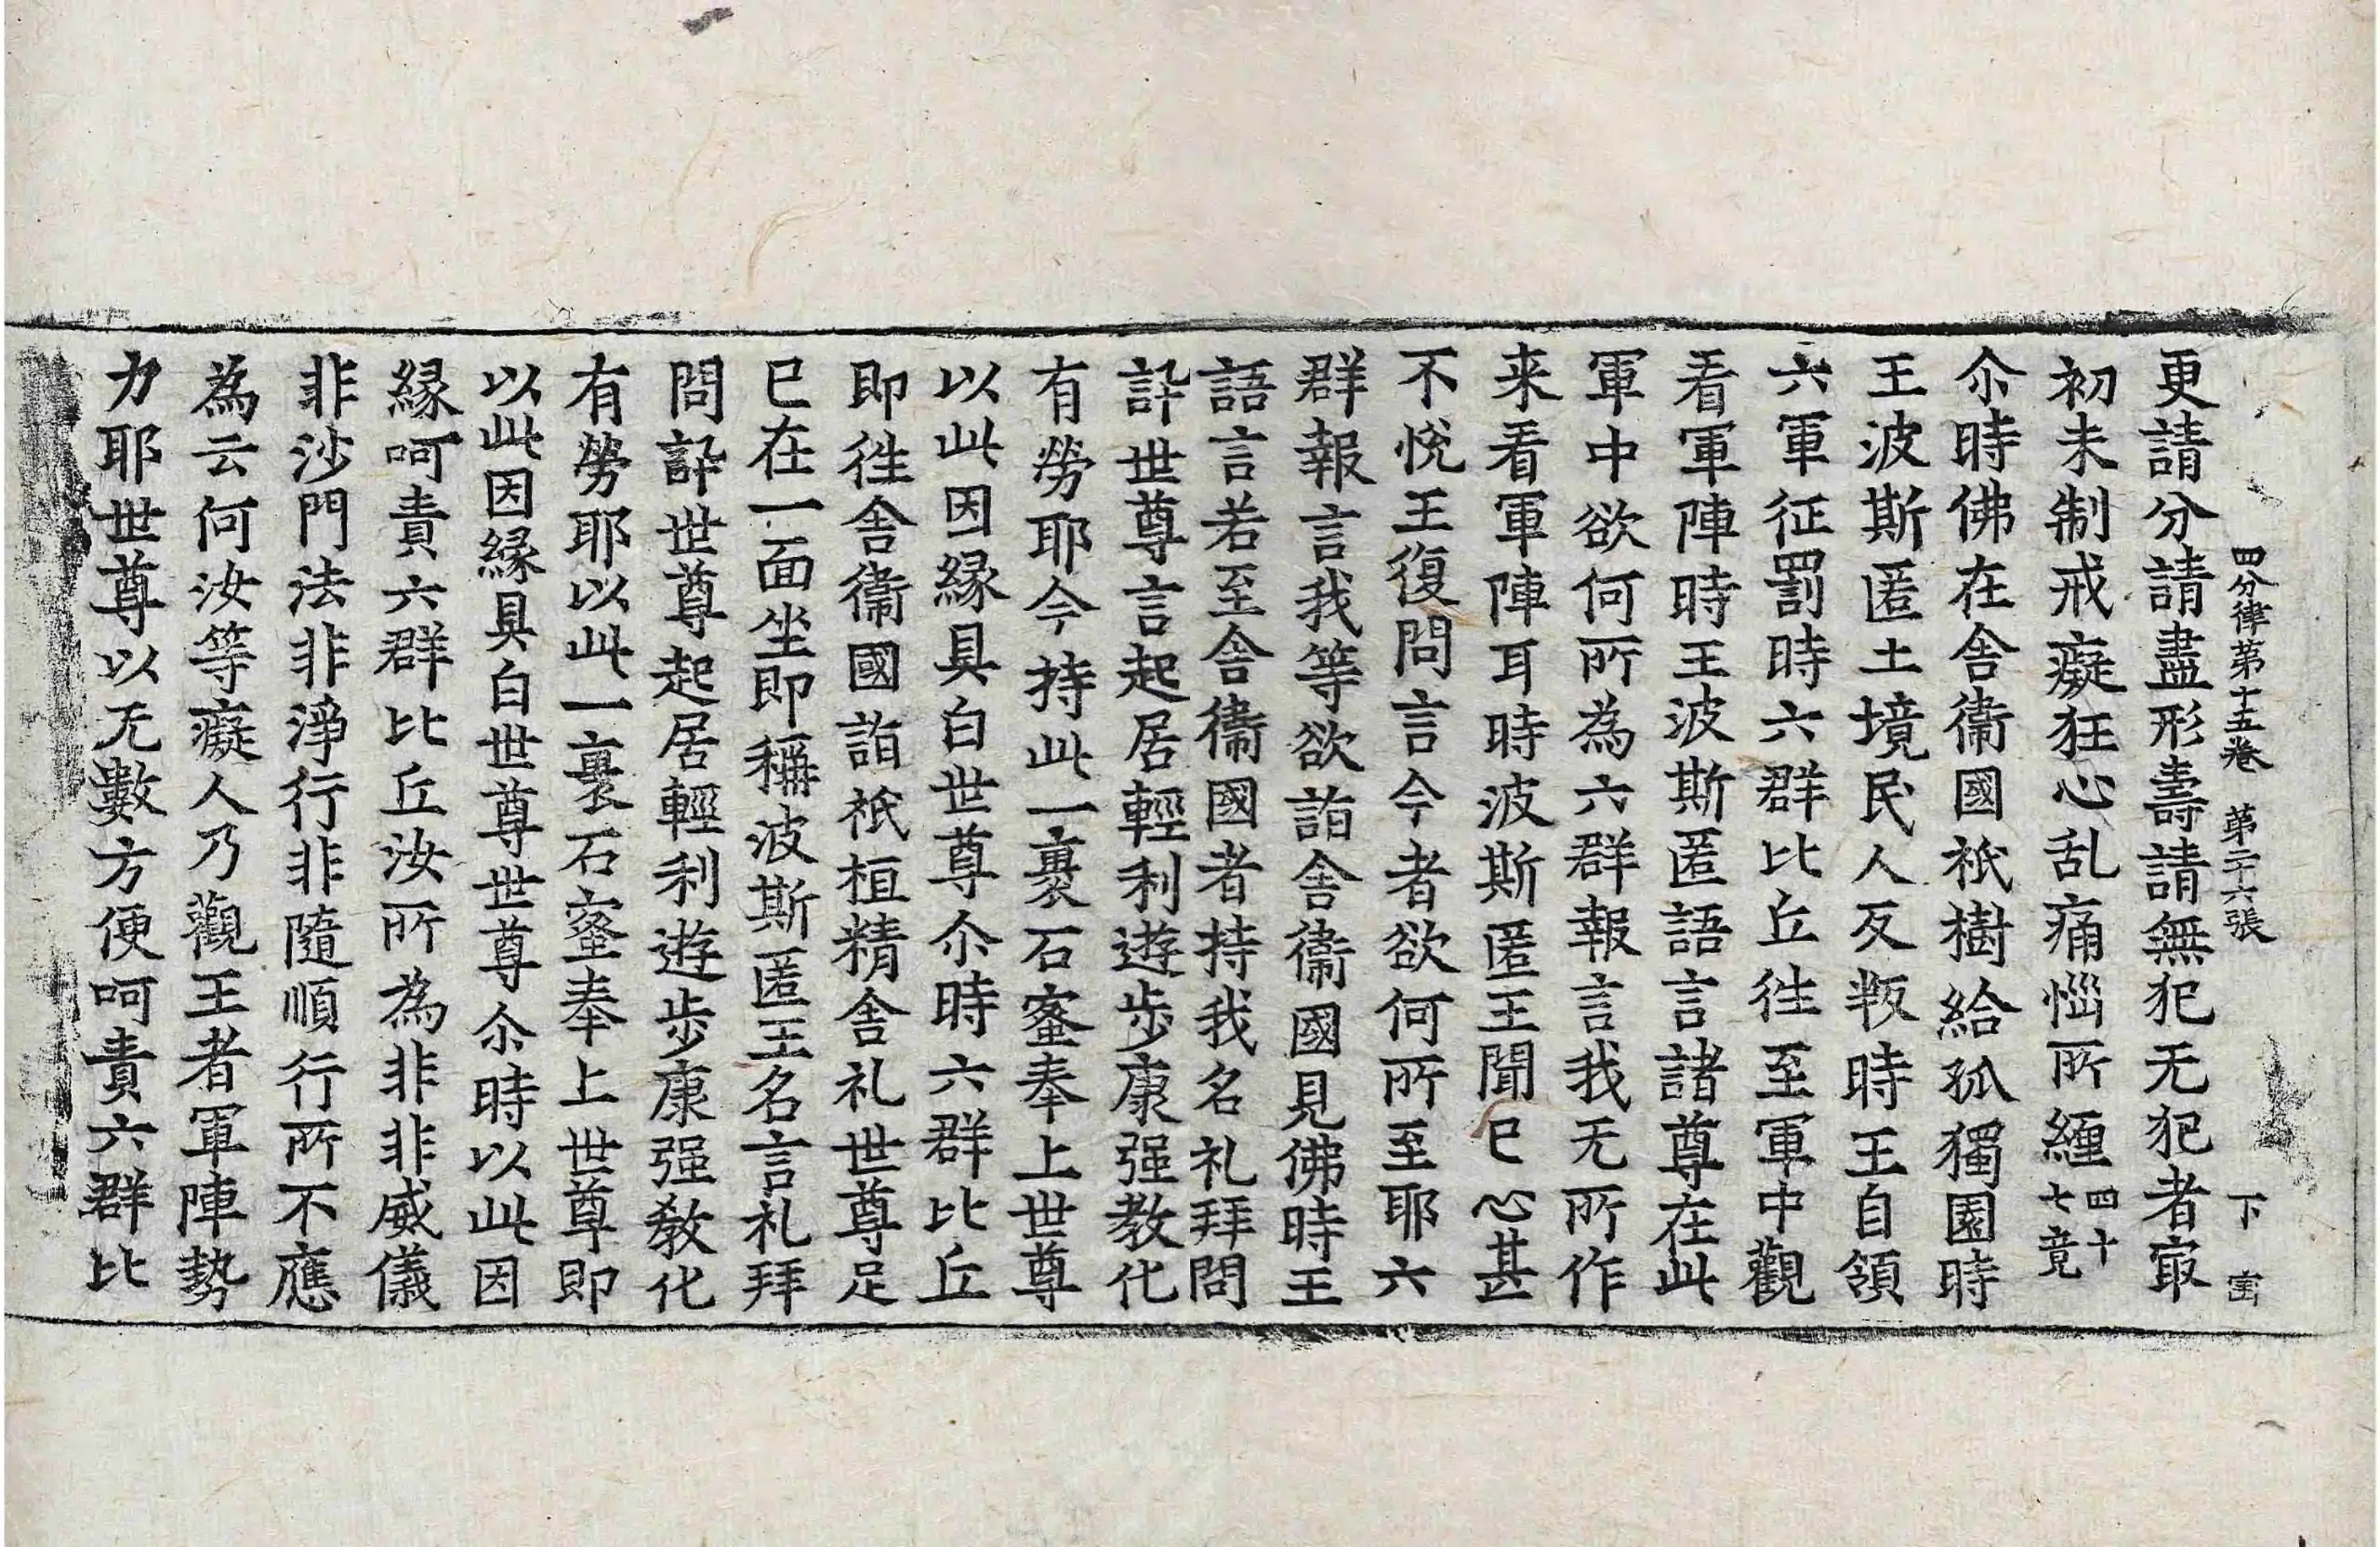 四分律第十五卷 第二十六張 下
更請分請盡形壽請無犯无犯者㝡
初未制戒癡狂心乱痛惱所纏四十七竟
尒時佛在舍衞國祇樹給孤獨園時
王波斯匿土境民人反叛時王自領
六軍征罰時六群比丘徃至軍中觀
看軍陣時王波斯匿語言諸尊在此
軍中欲何所為六群報言我无所作
来看軍陣耳時波斯匿王聞已心甚
不悅王復問言今者欲何所至耶六
群報言我等欲詣舍衞國見佛時王
語言若至舍衞國者持我名礼拜問
訊世尊言起居輕利遊步康强教化
有勞耶今持此一裹石蜜奉上世尊
以此因緣具白世尊尒時六群比丘
即徃舍衞國詣祇桓精舍礼世尊足
已在一面坐即稱波斯匿王名言礼拜
問訊世尊起居輕利遊步康强教化
有勞耶以此一裹石蜜奉上世尊即
以此因緣具白世尊世尊尒時以此因
緣呵責六群比丘汝所為非非威儀
非沙門法非淨行非隨順行所不應
為云何汝等癡人乃觀王者軍陣勢
力耶世尊以无數方便呵責六群比